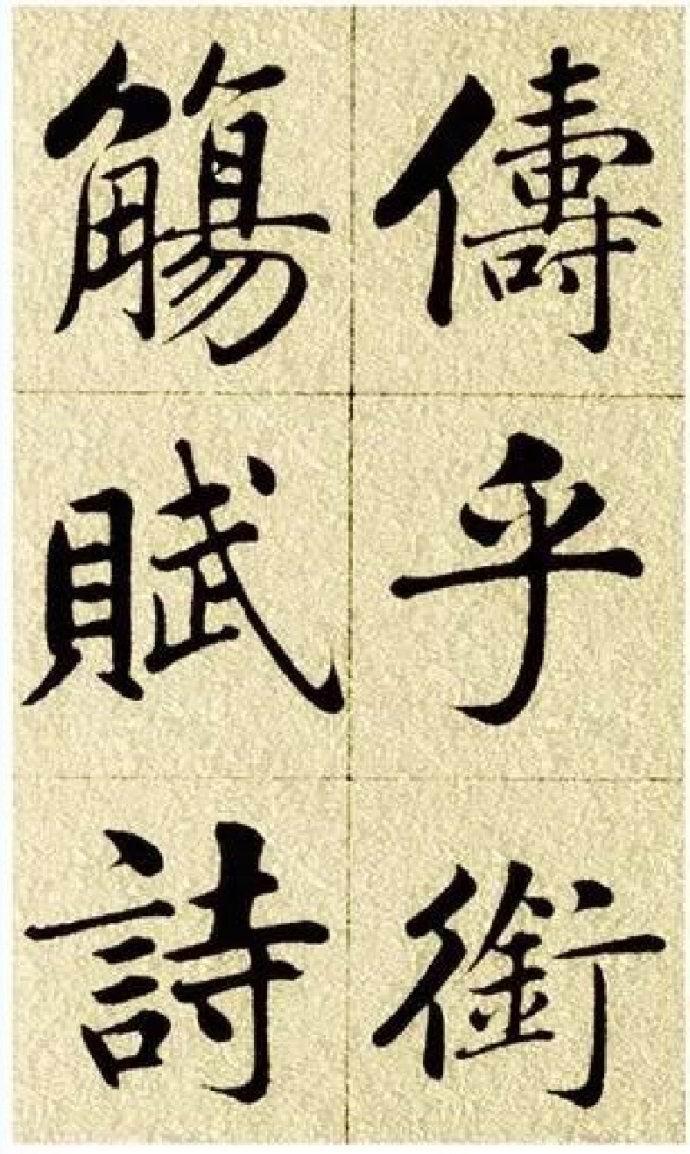 儔乎銜
觴賦詩